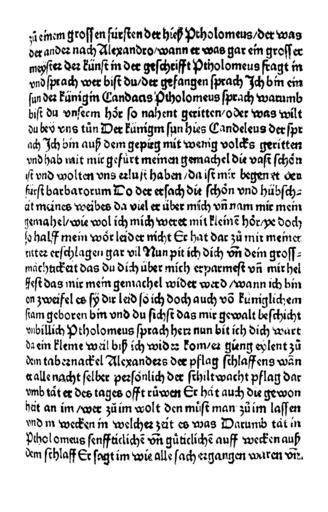 zů einem grossen fürsten der hieß Ptholomeus/der was
der ander nach Alexandro/wann er was gar ein grosser
meyster der künst in der geschrifft Ptholomeus fragt in
vnd sprach wer bist du/der gefangen sprach Ich bin ein
sun der künigin Candacis Ptholomeus sprach warumb
bist du vnserm hör so nahent geritten/oder was wilt
du bey vns tůn Der künigin sun hies Candeleus der spr
ach Jch bin auß dem gepirg mit wenig volcks geritten
vnd hab mit mir gefürt meinen gemachel die vast schön
ist vnd wolten vns erlust haben/da ist mir begen et der
fürst barbarorum Do der ersach die schön vnd hübsch-
eit meines weibes da viel er über mich vñ nam mir mein
gemahel/wie wol ich mich weret mit kleinē hör/ye doch
so halff mein wör leider nicht Er hat dar zů mir meiner
ritter erschlagen gar vil Nun pit ich dich vñ dein gross-
mächtickait das du dich über mich erparmest vñ mir hel
ffest das mir mein gemachel wider werd/wann ich bin
en zweifel es sÿ dir leid so ich doch auch vō küniglichem
stam geboren bin vnd du sichst das mir gewalt beschicht
vnbillich Ptholomeus sprach herr nun bit ich dich wart
da ein kleine weil biß ich wider kom/er gieng eylent zů
dem tabernackel Alexanders der pflag schlaffens wān
er alle nacht selber persönlich der schiltwacht pflag dar
vmb tät er des tages offt růwen Er hät auch die gewon
hät an im/wer zů im wolt den můst man zů im lassen
vnd in wecken in welcher zeit es was Darumb tät in
Ptholomeus senffticlichen vñ güticlichen auff wecken auß
dem schlaff Er sagt im wie alle sach ergangen waren vñ